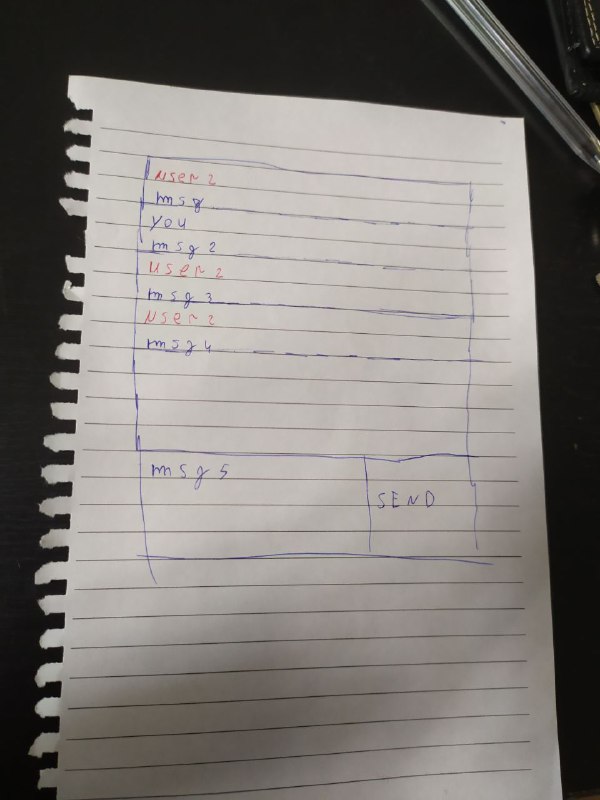 user 2
msg
you
msg 2
user 2
msg 3
user 2
msg 4
msg 5
SEND